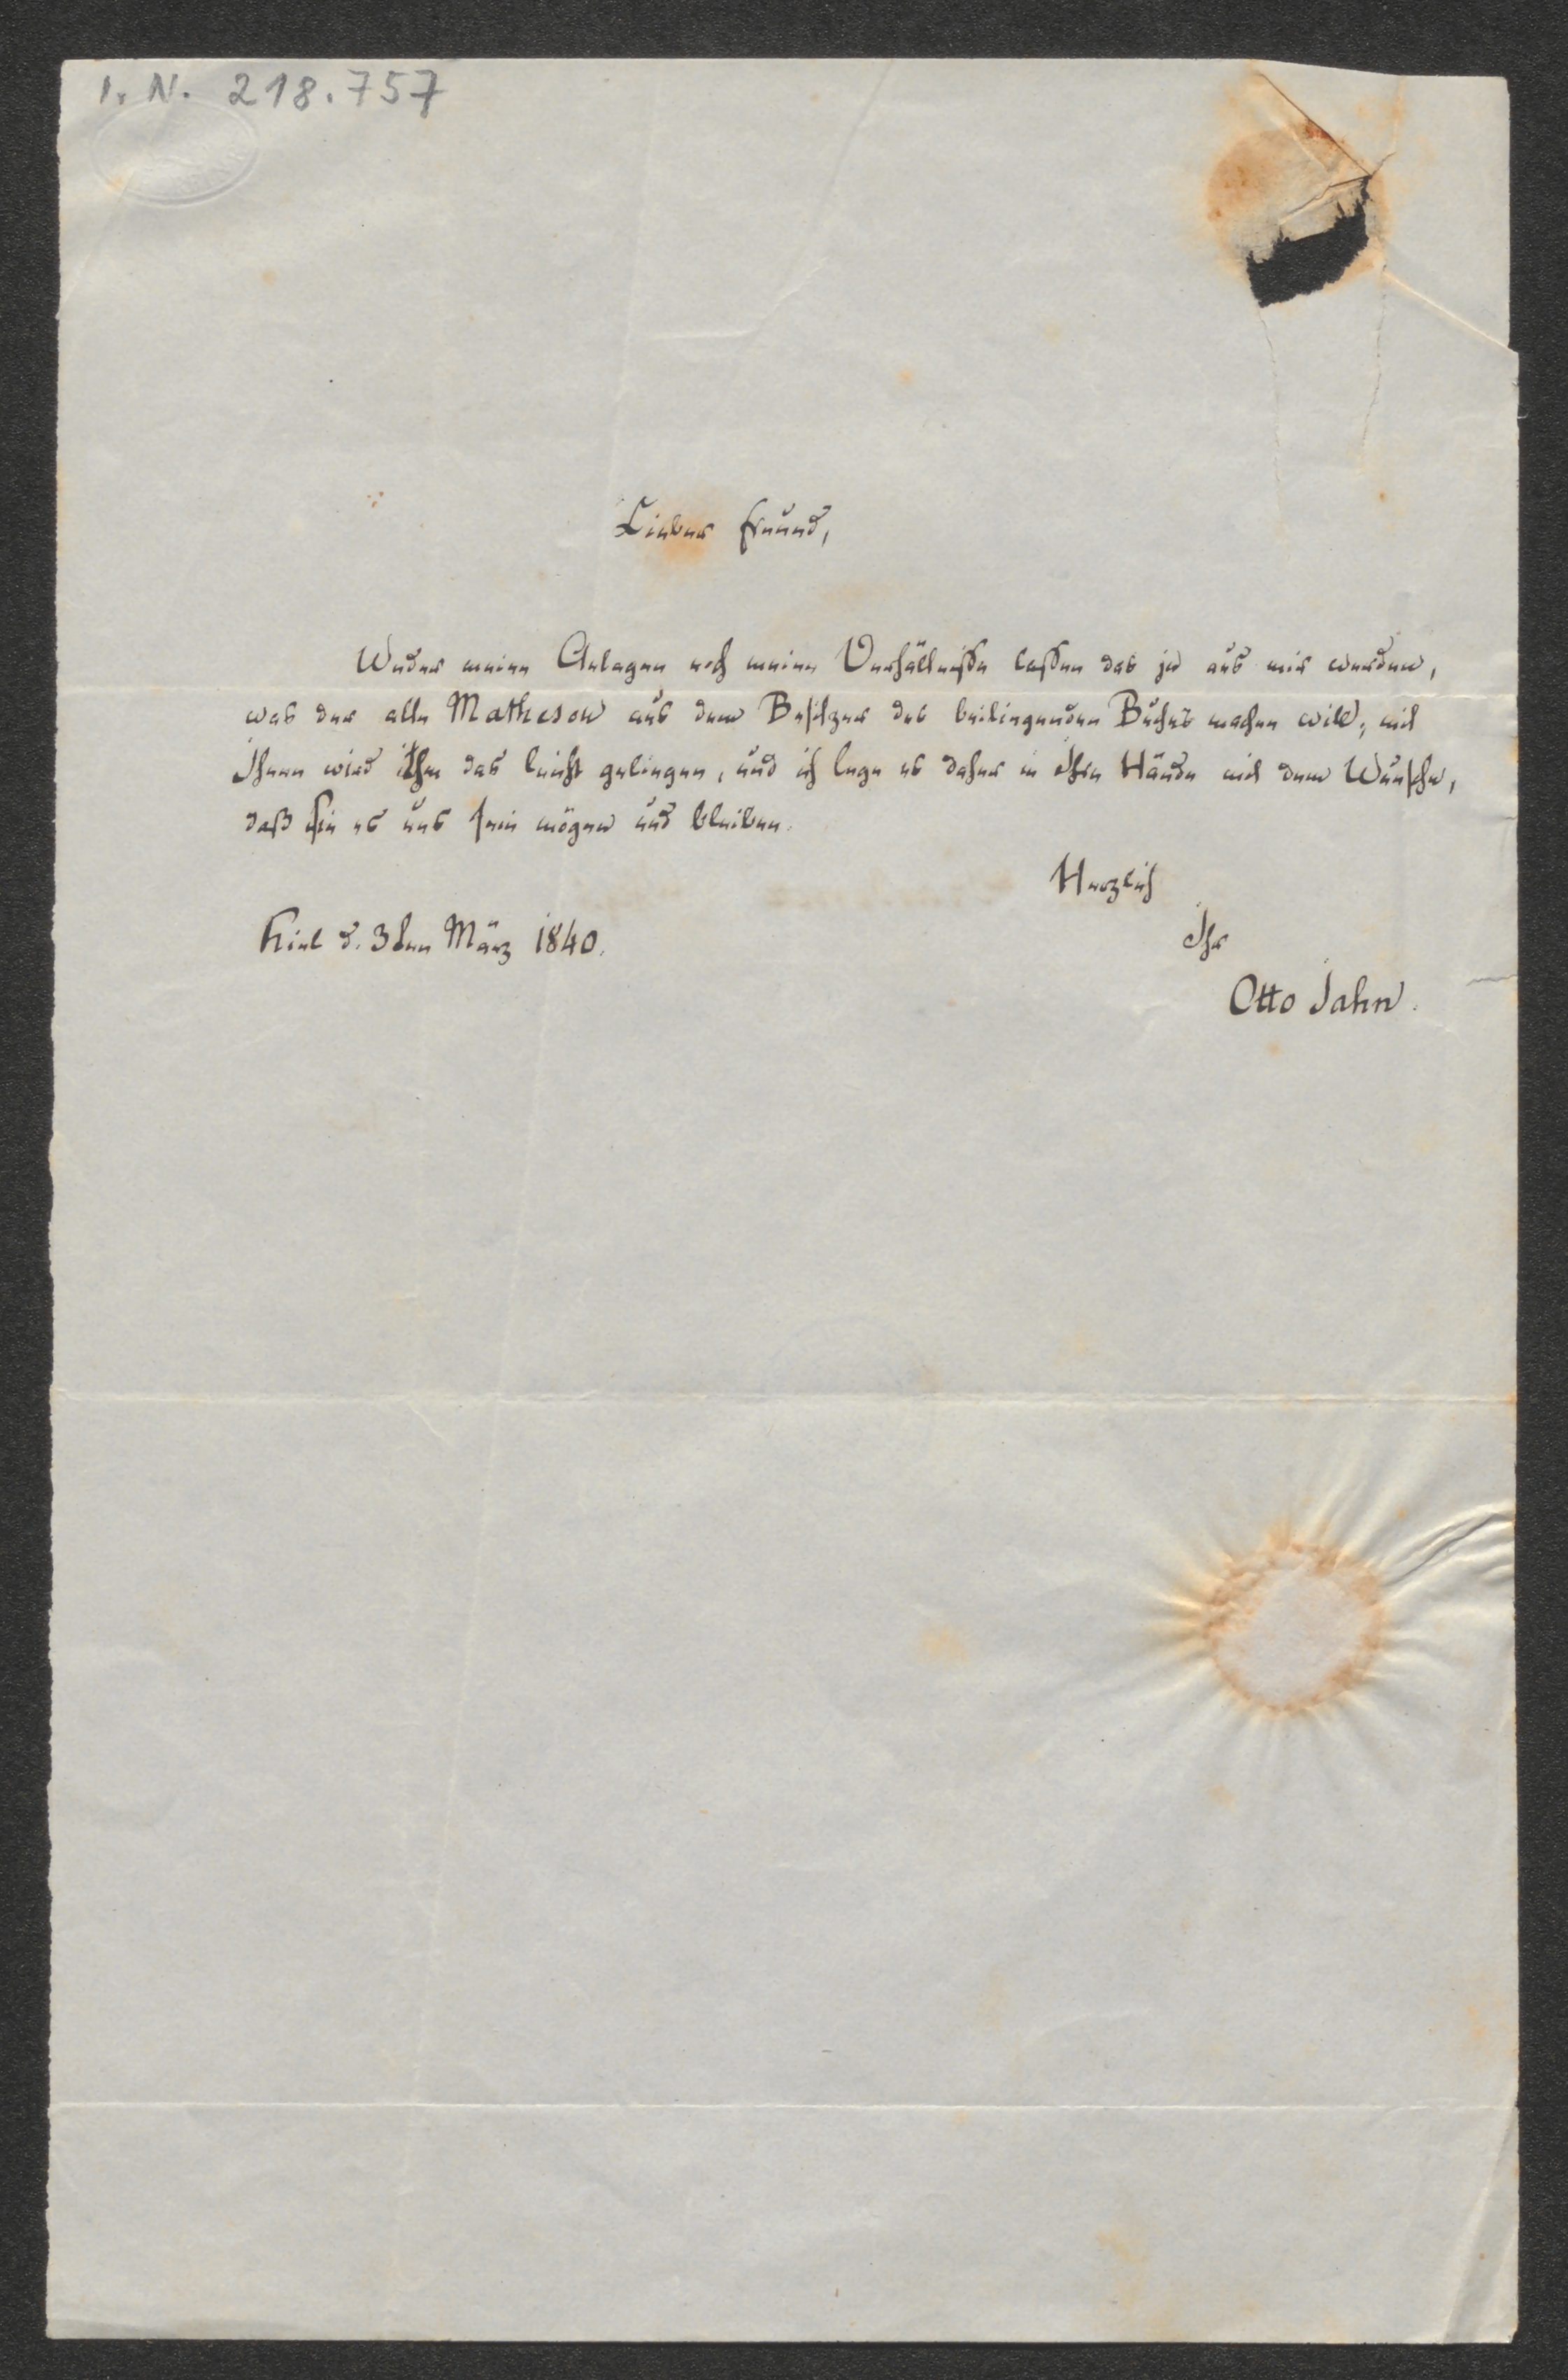 I. N. 218.757
Lieber Freund,
Weder meine Anlagen noch meine Verhältniße laßen das je aus mir werden,
was der alte Matheson aus dem Besitzer des beiliegenden Buches machen will; mit
Ihnen wird ihm das leicht gelingen, und ich lege es daher in Ihre Hände mit dem Wunsche,
daß Sie es uns sein mögen und bleiben.
Herzlich
Kiel d. 3ten März 1840.
Ihr
Otto Jahn.